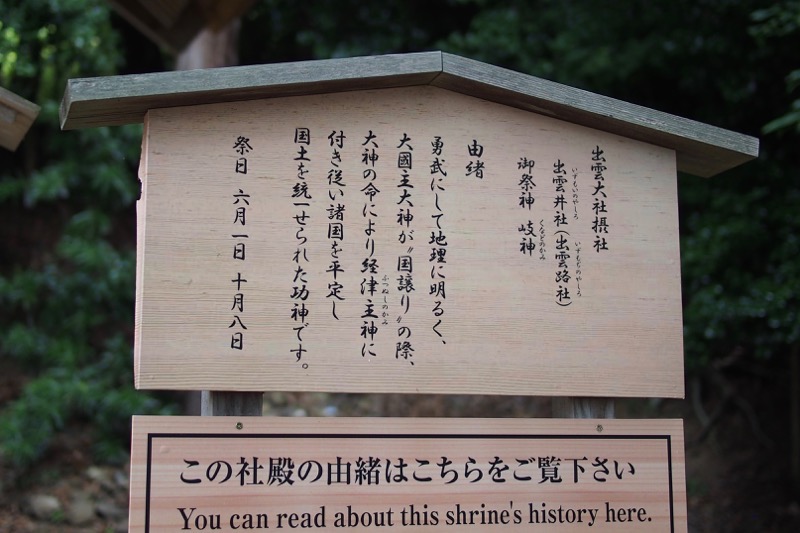 出雲大社摂社
出雲井社（出雲路社）
いずもいのやしろ
いずもちのやしろ
御祭神 岐神
くなどのかみ
由緒
勇武にして地理に明るく、
大國主大神が〝国譲り〟の際、
大神の命により経津主神に
ふつぬしのかみ
付き従い諸国を平定し
国土を統一せられた功神です。
祭日 六月一日 十月八日
この社殿の由緒はこちらをご覧下さい
You can read about this shrine's history here.